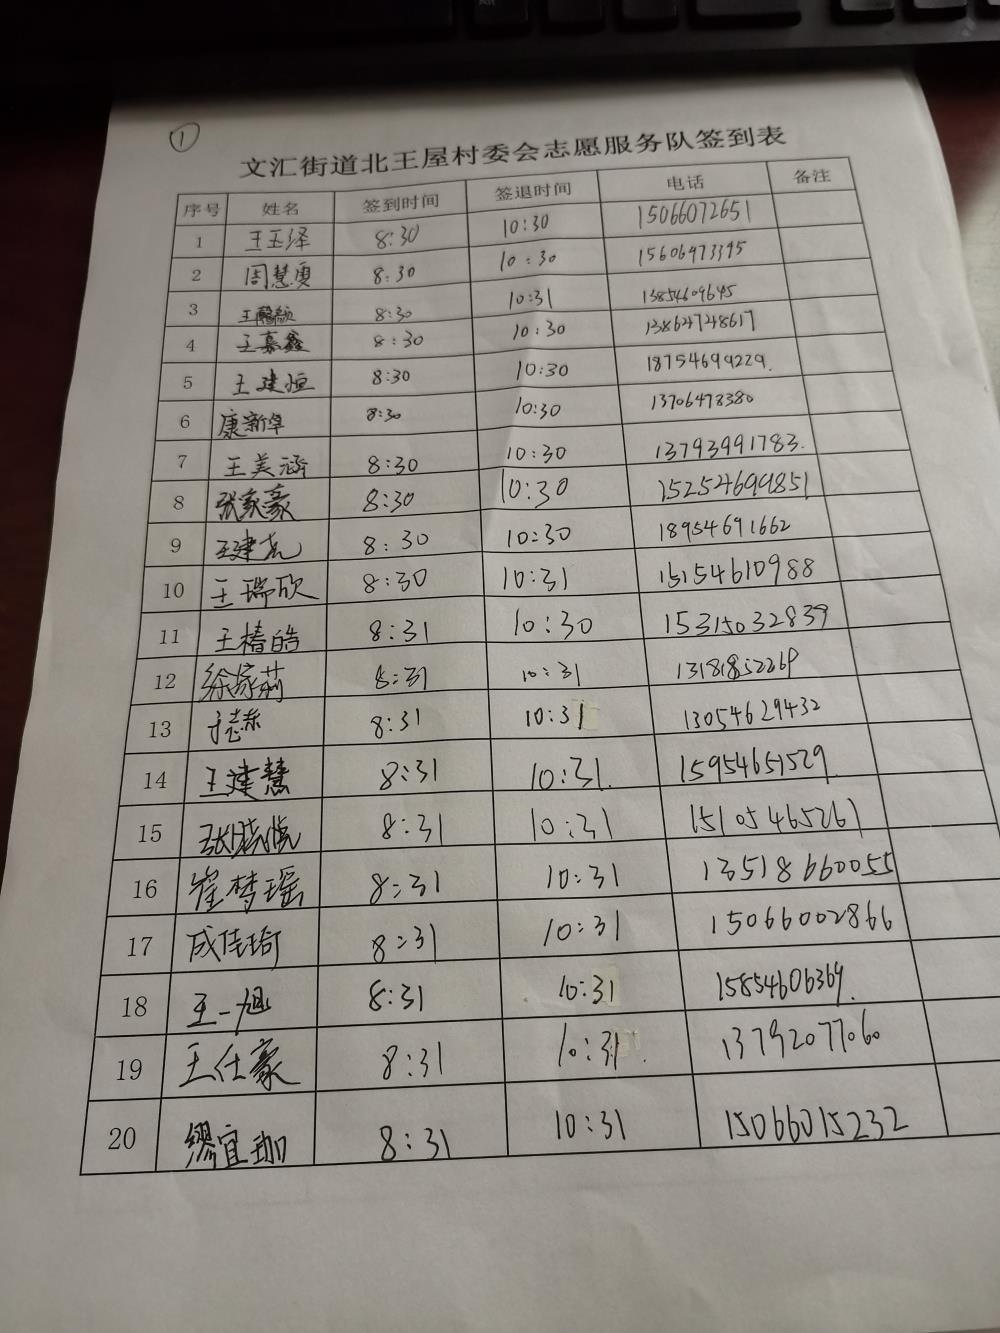 ①
文汇街道北王屋村委会志愿服务队签到表
序号 姓名 签到时间 签退时间 电话 备注
1 王玉泽 8:30 10:30 15066072651
2 周慧 8:30 10:30 15606473395
3 王馨颜 8:30 10:31 13854609645
4 王嘉鑫 8:30 10:30 13864748617
5 王建恒 8:30 10:30 18754699229.
6 康新卓 8:30 10:30 13706478380
7 王美涵 8:30 10:30 13793991783.
8 张家豪 8:30 10:30 15254699851
9 王建 8:30 10:30 18954691662
10 王瑞欣 8:30 10:31 15154610988
11 王椿皓 8:31 10:30 15315032839
12 徐家莉 8:31 10:31 13181852269
13 8:31 10:31 13054629432
14 王建慧 8:31 10:31. 15954651529
15 张晓悦 8:31 10:31 15105465261
16 崔梦瑶 8:31 10:31 13518660055
17 成佳琦 8:31 10:31 15066002866
18 王一旭 8:31 10:31 15854606369.
19 王仕豪 8:31 10:31. 13792077060
20 缪宜珈 8:31 10:31 15066015232